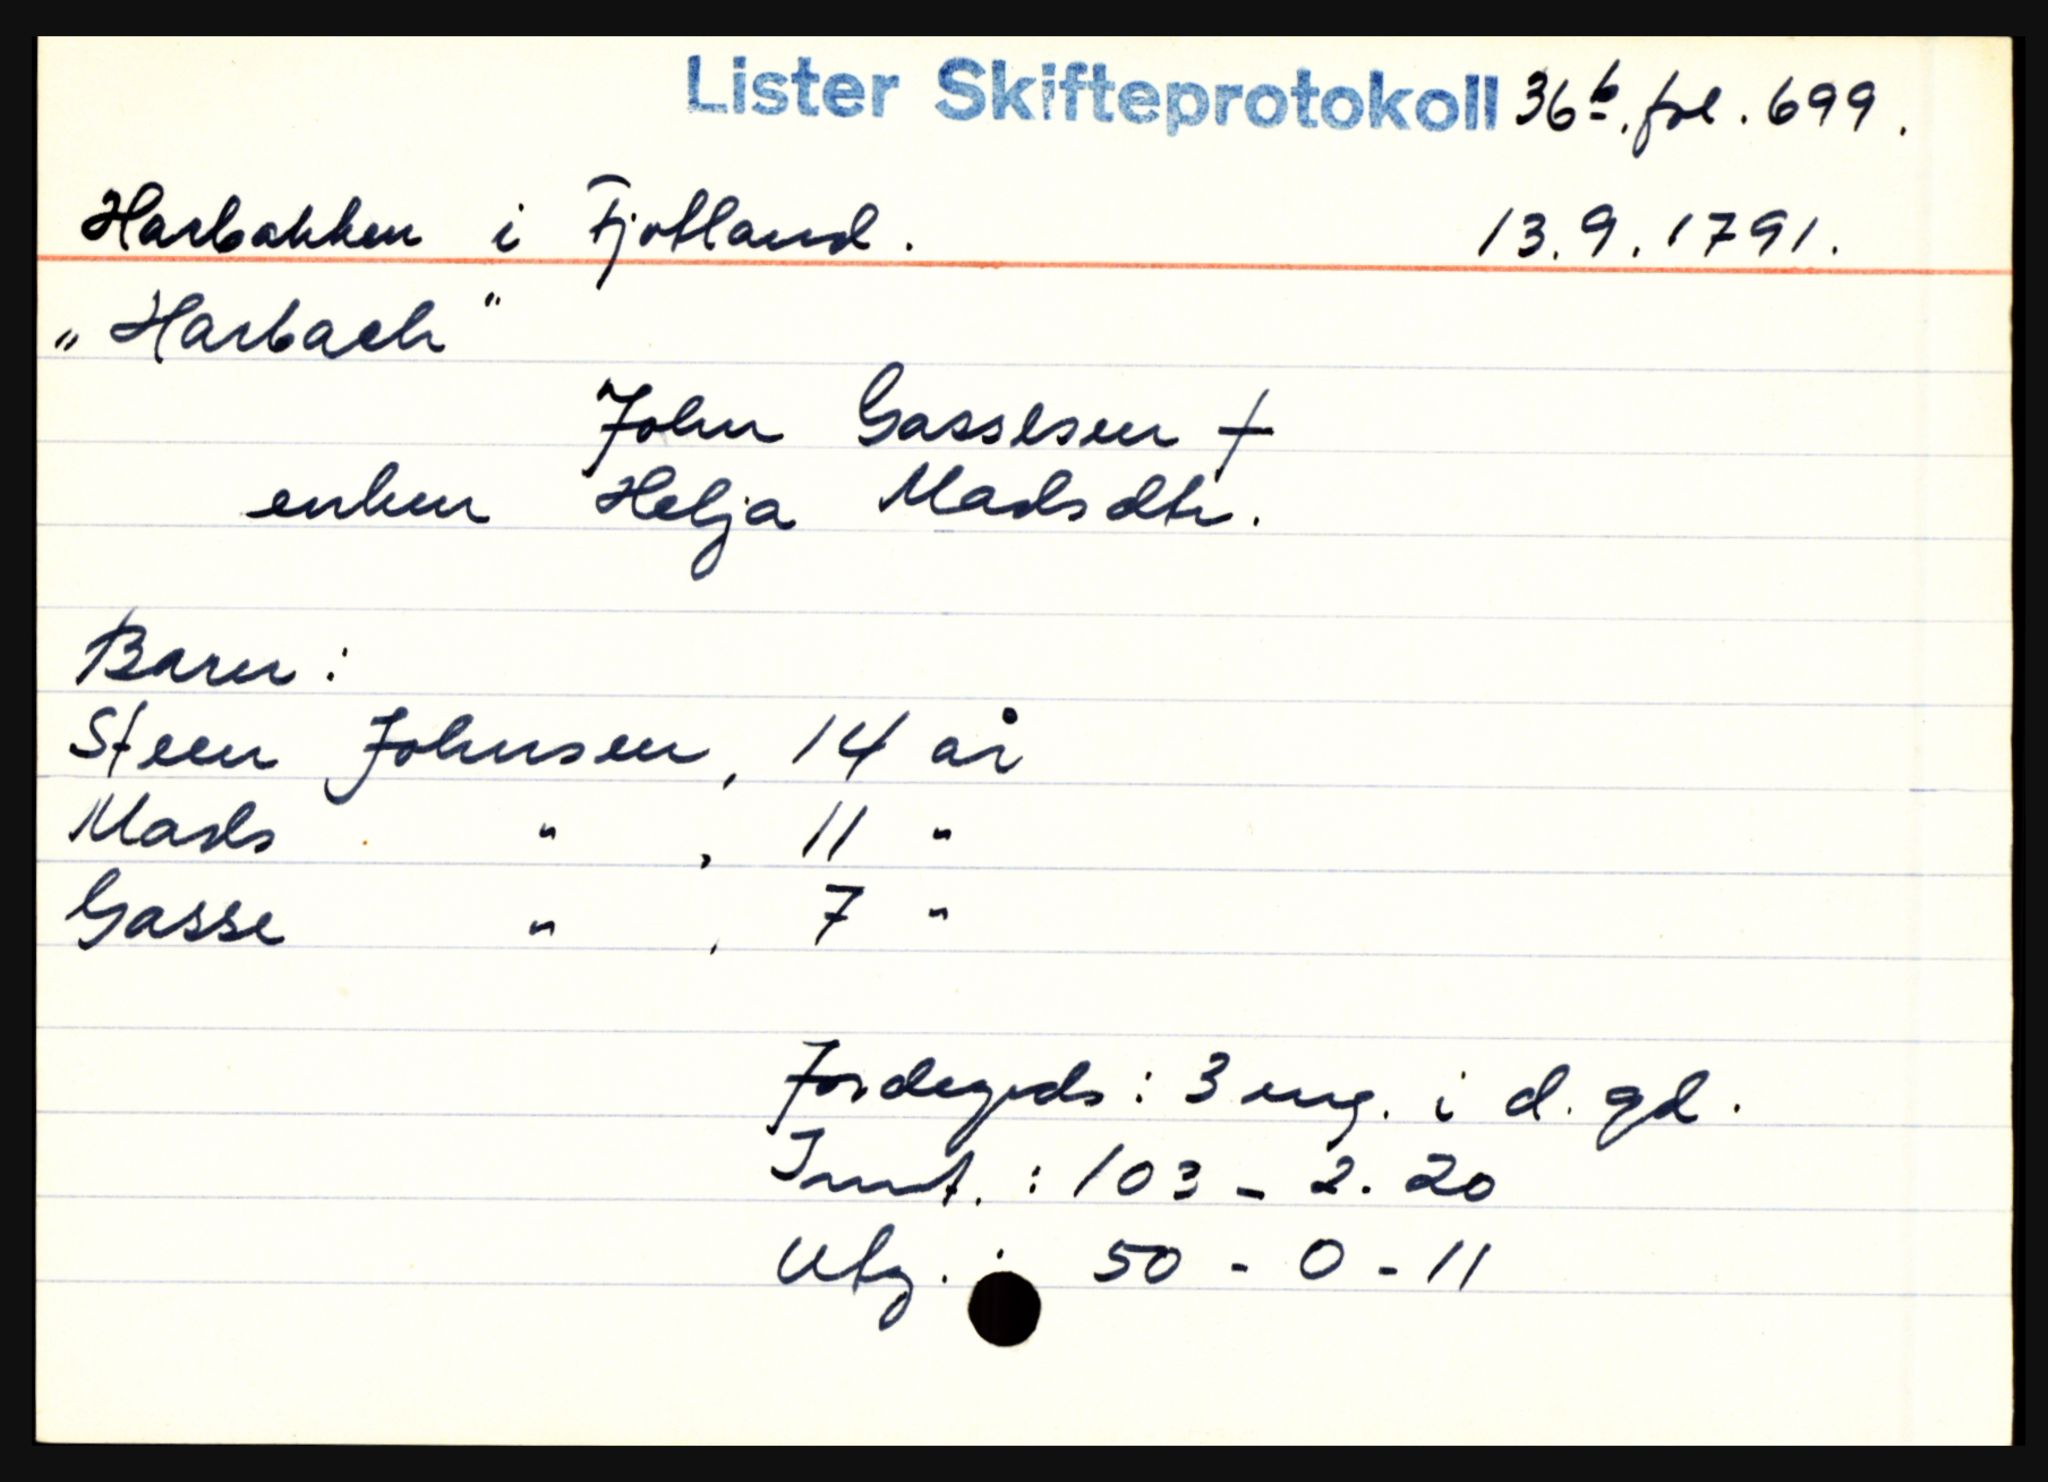 Lister Skifteprotokoll 36b, fol. 699.
Harbakken i Fjotland. 13.9.1791.
„Harbach"
John Gassesen †
enken Helja Madsdtr.
Barn:
Steen Johnsen, 14 år
Mads " , 11 "
Gasse " , 7 "
Jordegods: 3 eng. i d. gd.
Innt.: 103 - 2. 20
Utg. : 50 - 0 - 11